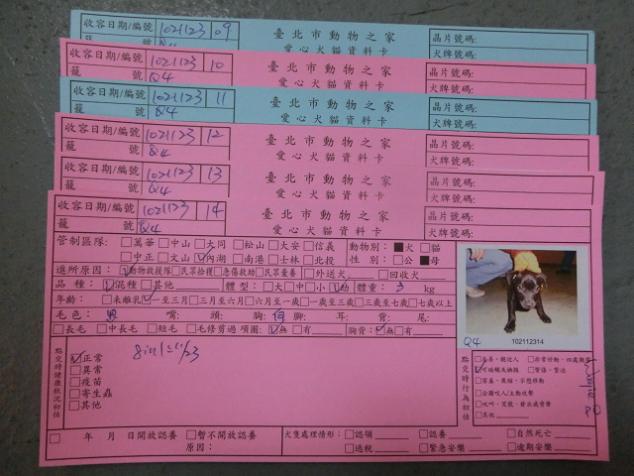 收容日期/編號 1021123 09 臺北市動物之家 晶片號碼:
籠 號 Q4 愛心犬貓資料卡 犬牌號碼:
收容日期/編號 1021123 10 臺北市動物之家 晶片號碼:
籠 號 Q4 愛心犬貓資料卡 犬牌號碼:
收容日期/編號 1021123 11 臺北市動物之家 晶片號碼:
籠 號 Q4 愛心犬貓資料卡 犬牌號碼:
收容日期/編號 1021123 12 臺北市動物之家 晶片號碼:
籠 號 Q4 愛心犬貓資料卡 犬牌號碼:
收容日期/編號 1021123 13 臺北市動物之家 晶片號碼:
籠 號 Q4 愛心犬貓資料卡 犬牌號碼:
收容日期/編號 1021123 14 臺北市動物之家 晶片號碼:
籠 號 Q4 愛心犬貓資料卡 犬牌號碼:
管制區隊: □萬華 □中山 □大同 □松山 □大安 □信義 動物別: ■犬 □貓
□中正 □文山 ☑內湖 □南港 □士林 □北投 性 別: □公 ■母
進所原因: ☑動物救援隊 □民眾拾獲 □急傷救助 □民眾棄養 □外送犬 □回收犬
品 種: ☑混種 □其他 體型: □大 □中 □小 ☑幼 體重: 3 kg
年齡: □未離乳 ☑一至三月 □三月至六月 □六月至一歲 □一歲至三歲 □三歲至七歲 □七歲以上
毛色: 黑 嘴: 頭: 胸: 白 腳: 耳: 背: 尾:
□長毛 □中長毛 □短毛 □毛修剪過 項圈: ☑無 □有 胸背: ☑無 □有
Q4 102112314
點交時健康狀況初估
☑正常
□異常
□疫苗
□寄生蟲
□其他
點交時行為初估
□ 年 月 日開放認養 □暫不開放認養
原因:
犬隻處理情形: □認領 □認養 □自然死亡
□逃脫 □緊急安樂 □逾期安樂